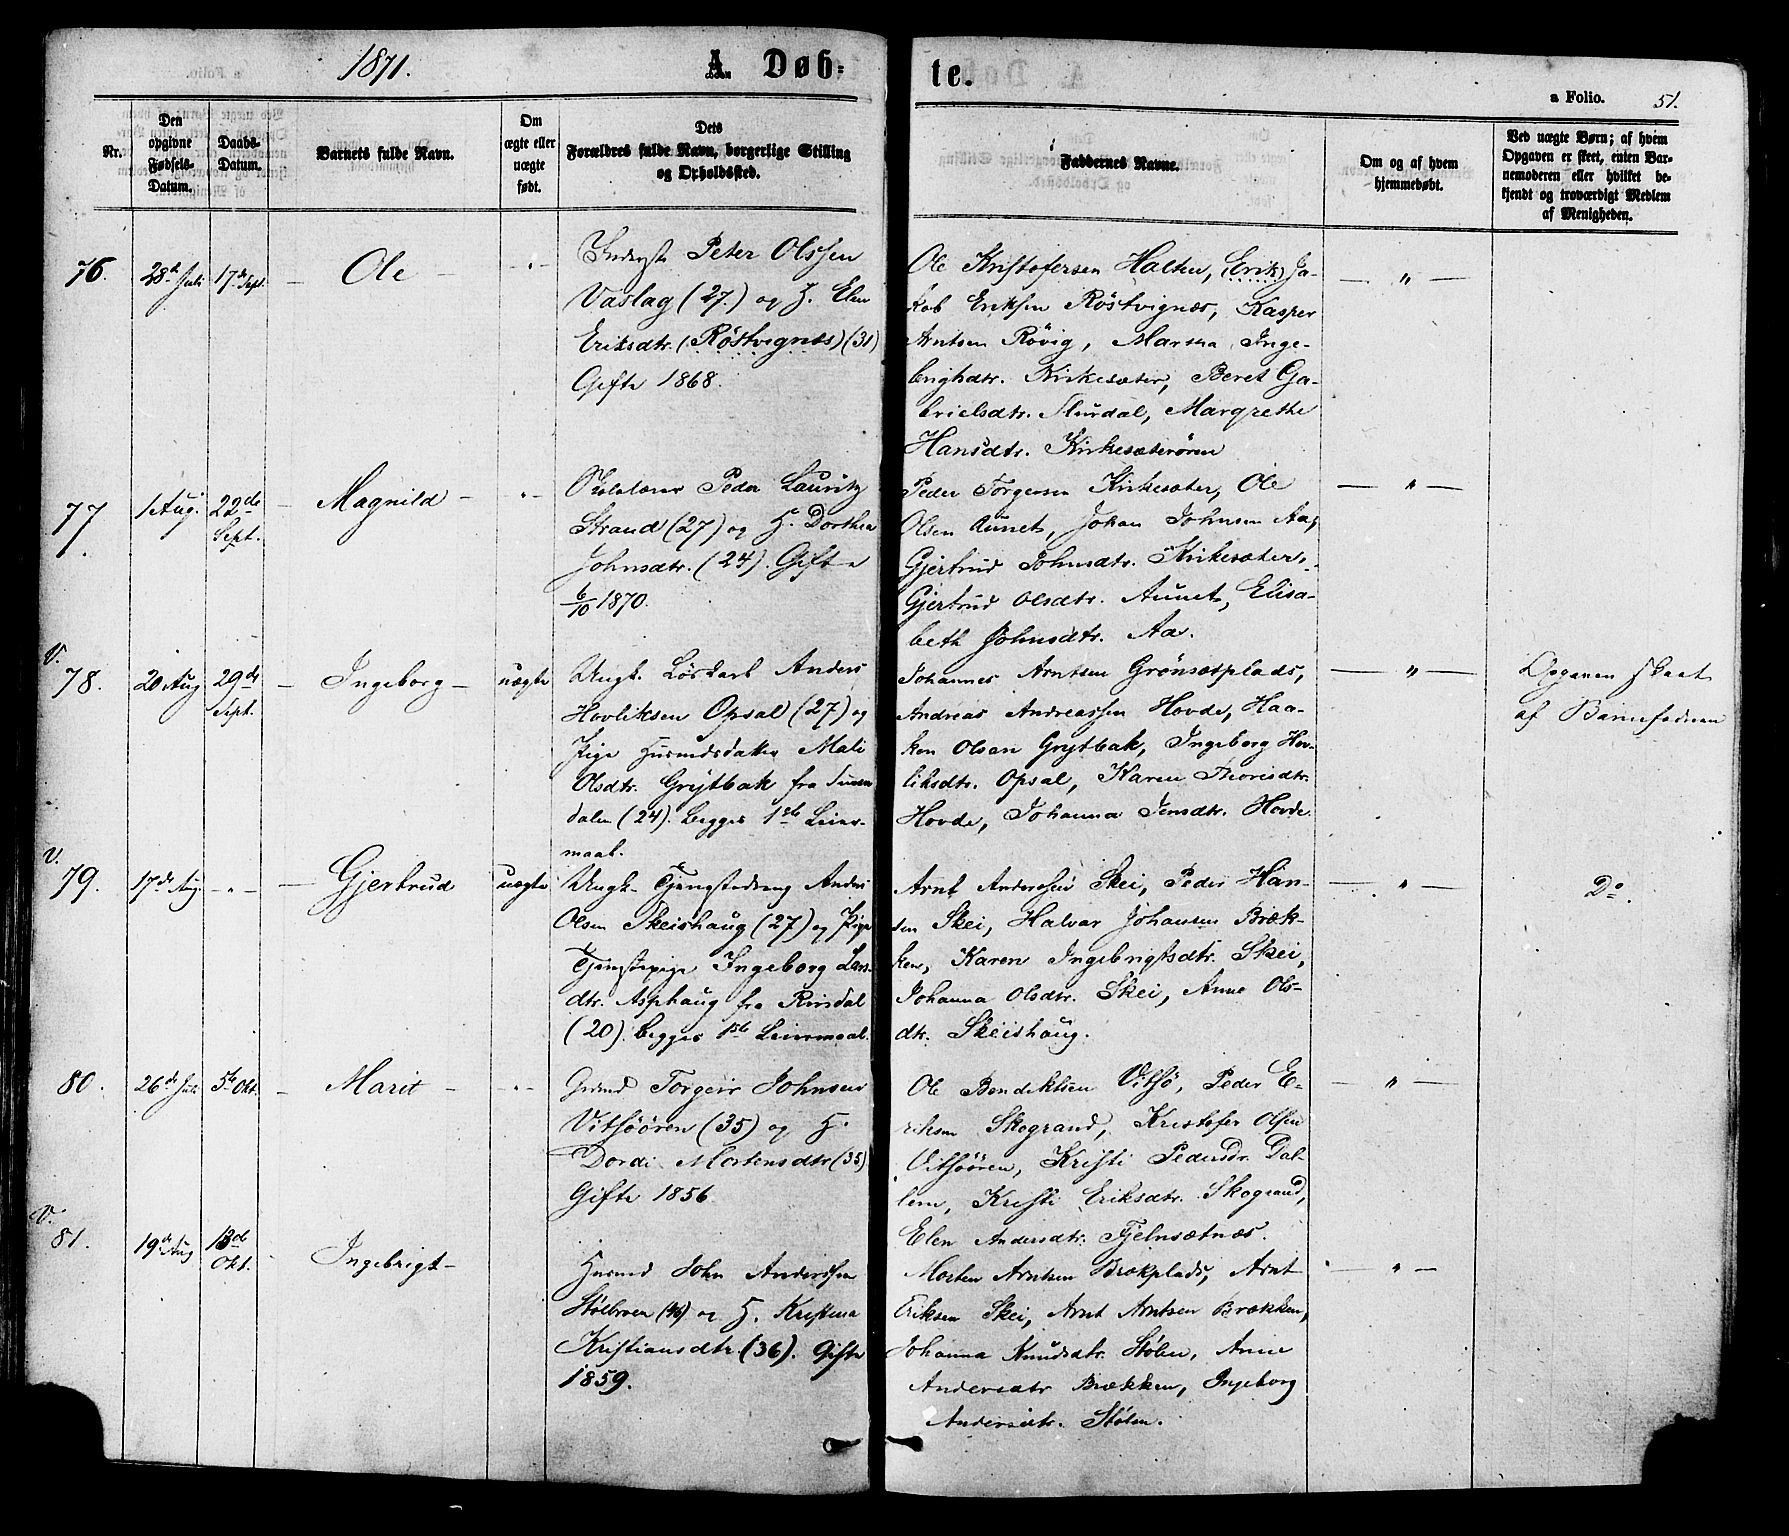 1871.
A. Døb=
te.
a Folio. 51.
Nr.
Den opgivne Fødsels-Datum.
Daabs-Datum.
Barnets fulde Navn.
Om ægte eller uægte født.
Dets Forældres fulde Navn, borgerlige Stilling og Opholdssted.
Faddernes Navne.
Om og af hvem hjemmedøbt.
Ved uægte Børn; af hvem Opgaven er skeet, enten Barnemoderen eller hvilket bekjendt og troværdigt Medlem af Menigheden.
76. 28de Juli 17de Sept. Ole
Inderst Peter Olssen
Vaslag (27) og H. Elen
Eriksdtr. (Röstvignæs) (31)
Gifte 1868.
Ole Kristofersen Halten, (Erik) Ja-
kob Eriksen Röstvignæs, Kasper
Arntsen Rövig, Marsha Inge-
brightdtr. Kirkesæter, Beret Ga-
brielsdtr. Slurdal, Margrethe
Hansdtr. Kirkesæterören
77. 1 Aug. 22de Sept. Magnild
Skolelærer Peder Lauritz
Strand (27) og H. Dorthea
Johnsdtr. (24). Gifte
6/10 1870.
Peder Torgersen Kirkesæter, Ole
Olsen Aunet, Johan Johnsen Aa,
Gjertrud Johnsdtr. Kirkesæter,
Gjertrud Olsdtr. Aunet, Elisa-
beth Johnsdtr. Aa.
V.
78. 20 Aug 29de Sept. Ingeborg uægte
Ungk. Löskarl Anders
Hovliksen Opsal (27) og
Pige Husmdsdatter Mali
Olsdtr. Grytbak fra Suren-
dalen (24). begges 1ste Leier-
maal.
Johannes Arntsen Grönsetplads,
Andreas Andreassen Hovde, Haa-
kon Olsen Grytbak, Ingeborg Hov-
liksdtr. Opsal, Karen Thorisdtr.
Hovde, Johanna Jensdtr. Hovde.
Opgaven skeet
af Barnefaderen
V.
79. 17de Aug. Gjertrud uægte
Ungk. Tjenestedreng Anders
Olsen Skeishaug (27) og Pige
Tjenstepige Ingeborg Lars-
dtr. Asphaug fra Rinsdal
(20). begges 1ste Leiermaal.
Arnt Anderssen Skei, Peder Han-
sen Skei, Halvar Johansen Bræk-
ken, Karen Ingebrigtsdtr. Skei,
Johanna Olsdtr. Skei, Anne Ols-
dtr. Skeishaug.
Do.
80. 26de Juli 5te Okt. Marit
Grdmd Torgeir Johnsen
Vitsöören (35) og H.
Dordi Mortensdtr (35)
Gifte 1856.
Ole Bendiktsen Vitsö, Peder E-
riksen Skogrand, Kristofer Olsen
Vitsöören, Kristi Pedersdr. Dal-
lem, Kristi Eriksdtr. Skogrand,
Elen Andersdtr. Fjelnsætnæs.
V.
81. 19de Aug 13de Okt. Ingebrigt
Husmd John Anderssen
Stölbroen (46) og H. Kristina
Kristiansdtr. (36). Gifte
1859.
Morten Arntsen Brækplads, Arnt
Eriksen Skei, Arnt Arntsen Brækken,
Johanna Knudsdtr. Stölen, Anne
Andersdtr Brækken, Ingeborg
Andersdtr. Stölen.